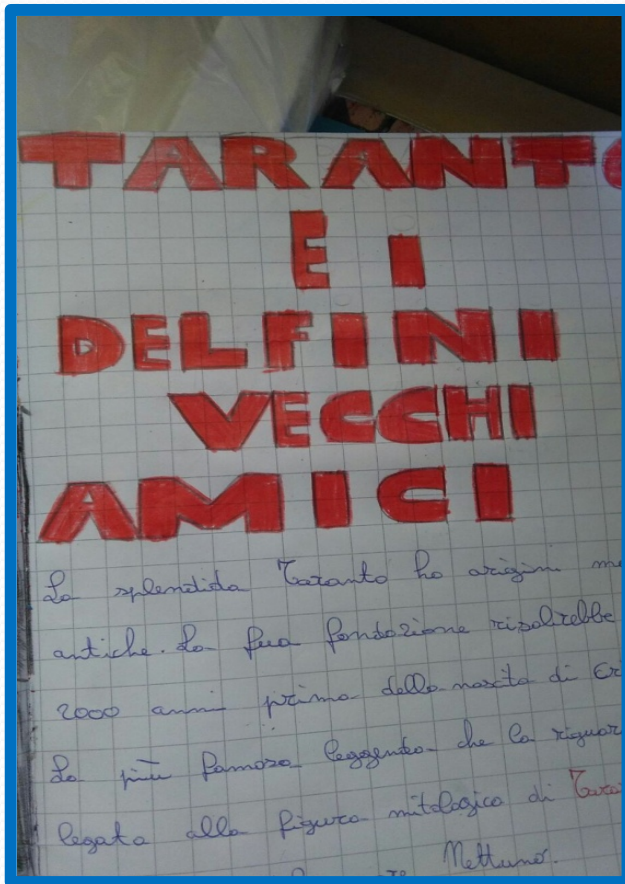 TARANTO
E I
DELFINI
VECCHI
AMICI
La splendida Taranto ha origini
antiche. La sua fondazione risalirebbe
2000 anni prima della nascita di
La più famosa leggenda che la
legata alla figura mitologica di
Nettuno.